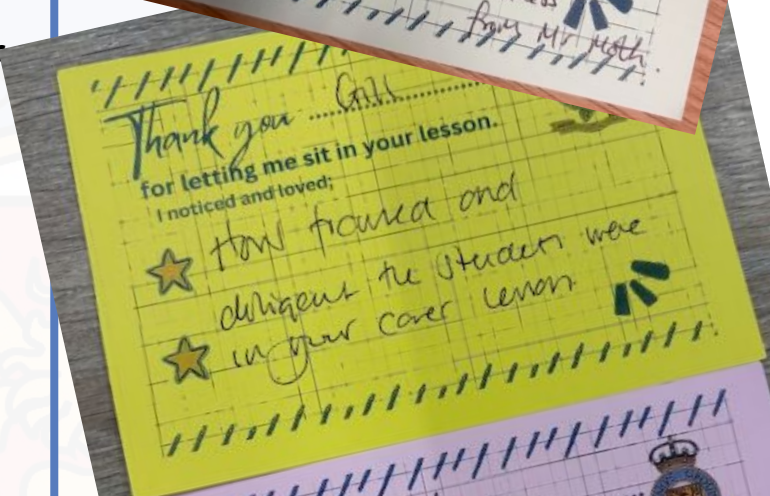 from Mr Moth.
Thank you Gill
for letting me sit in your lesson.
I noticed and loved;
How focused and
diligent the students were
in your cover lesson